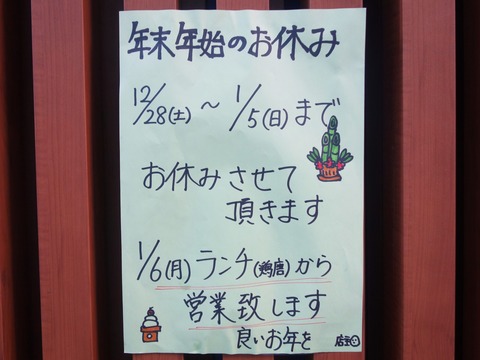 年末年始のお休み
12/28(土)～1/5(日)まで
お休みさせて
頂きます
1/6(月)ランチ(鶏唐)から
営業致します
良いお年を 店主